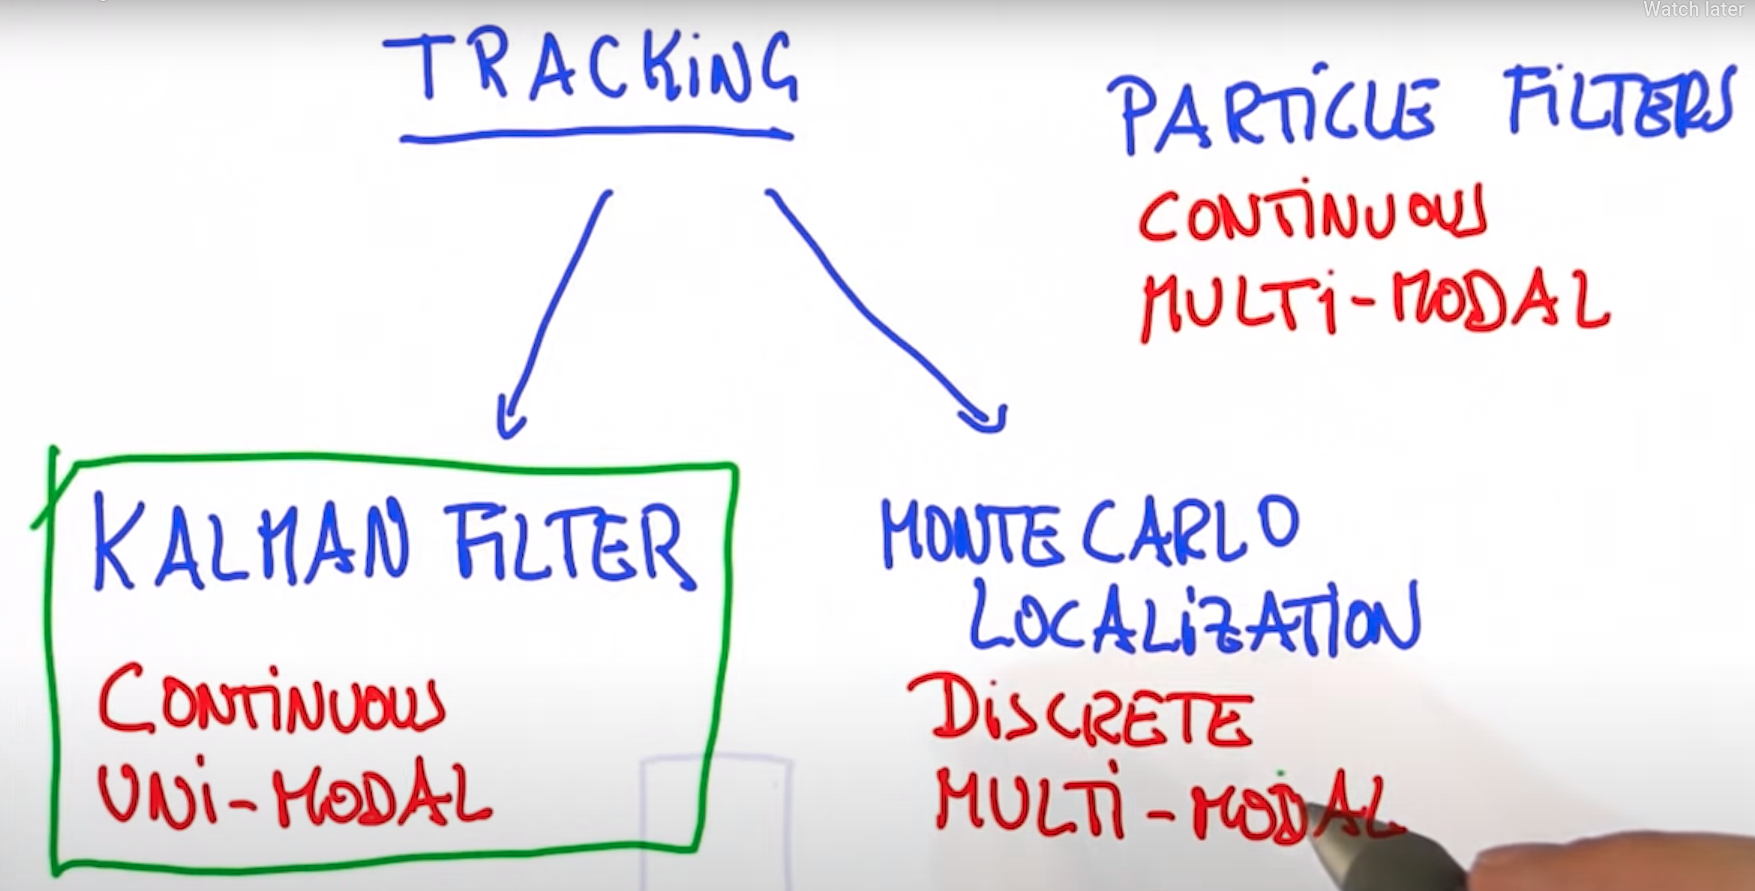 Watch later
TRACKiNG
PARTiCLE FiLTERS
CONTiNUOUS
MULTi-MODAL
KALMAN FiLTER
CONTiNUOUS
UNi-MODAL
MONTE CARLO
LOCALiZATION
DiSCRETE
MULTi-MODAL